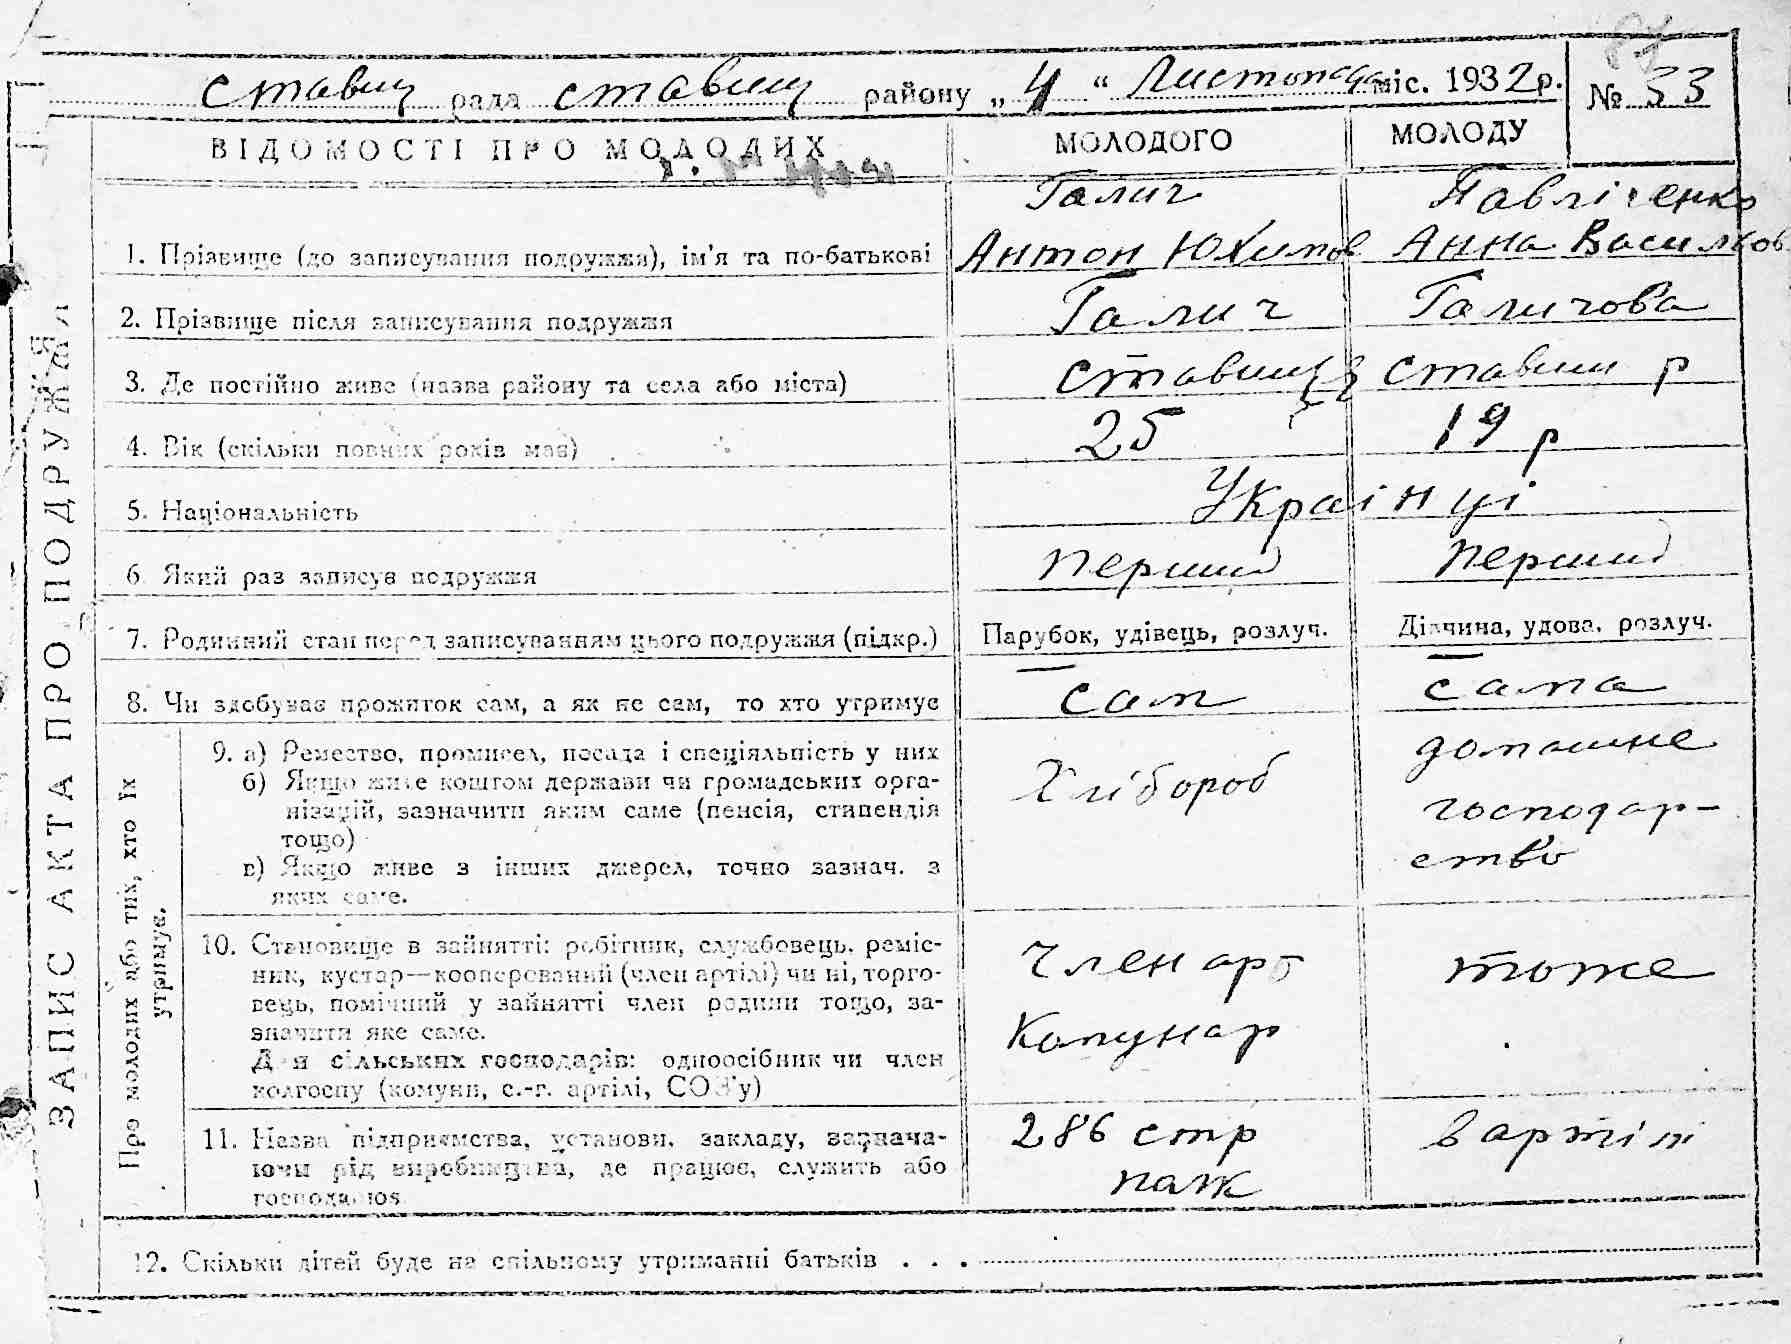 ставищ рада ставищ району „ 4 “ Листопада міс. 1932 р. № 33
ВІДОМОСТІ ПРО МОЛОДИХ МОЛОДОГО МОЛОДУ
Галич Павліченко
1. Прізвище (до записування подружжя), ім'я та по-батькові Антон Юхимов Анна Васильов
2. Прізвище після записування подружжя Галич Галичова
3. Де постійно живе (назва району та села або міста) ставищ р ставищ р
4. Вік (скільки повних років має) 25 19 р
5. Національність Українці
6. Який раз записує подружжя перший перший
7. Родинний стан перед записуванням цього подружжя (підкр.) Парубок, удівець, розлуч. Дівчина, удова, розлуч.
8. Чи здобуває прожиток сам, а як не сам, то хто утримує сам сама
9. а) Ремество, промисел, посада і спеціяльність у них
б) Якщо живе коштом держави чи громадських орга-
нізацій, зазначити яким саме (пенсія, стипендія
тощо)
в) Якщо живе з інших джерел, точно зазнач. з
яких саме.
Хлібороб
домашнє
господар-
ство
10. Становище в зайнятті: робітник, службовець, реміс-
ник, кустар—кооперований (член артілі) чи ні, торго-
вець, помічний у зайнятті член родини тощо, за-
значити яке саме.
Для сільських господарів: одноосібник чи член
колгоспу (комуни, с.-г. артілі, СОЗ'у)
Член арт
тоже
11. Назва підприємства, установи, закладу, зазнача-
ючи рід виробництва, де працює, служить або
господарює
286 стр
полк
в артілі
12. Скільки дітей буде на спільному утриманні батьків . . .
ЗАПИС АКТА ПРО ПОДРУЖЖЯ
Про молодих або тих, хто їх
утримує.